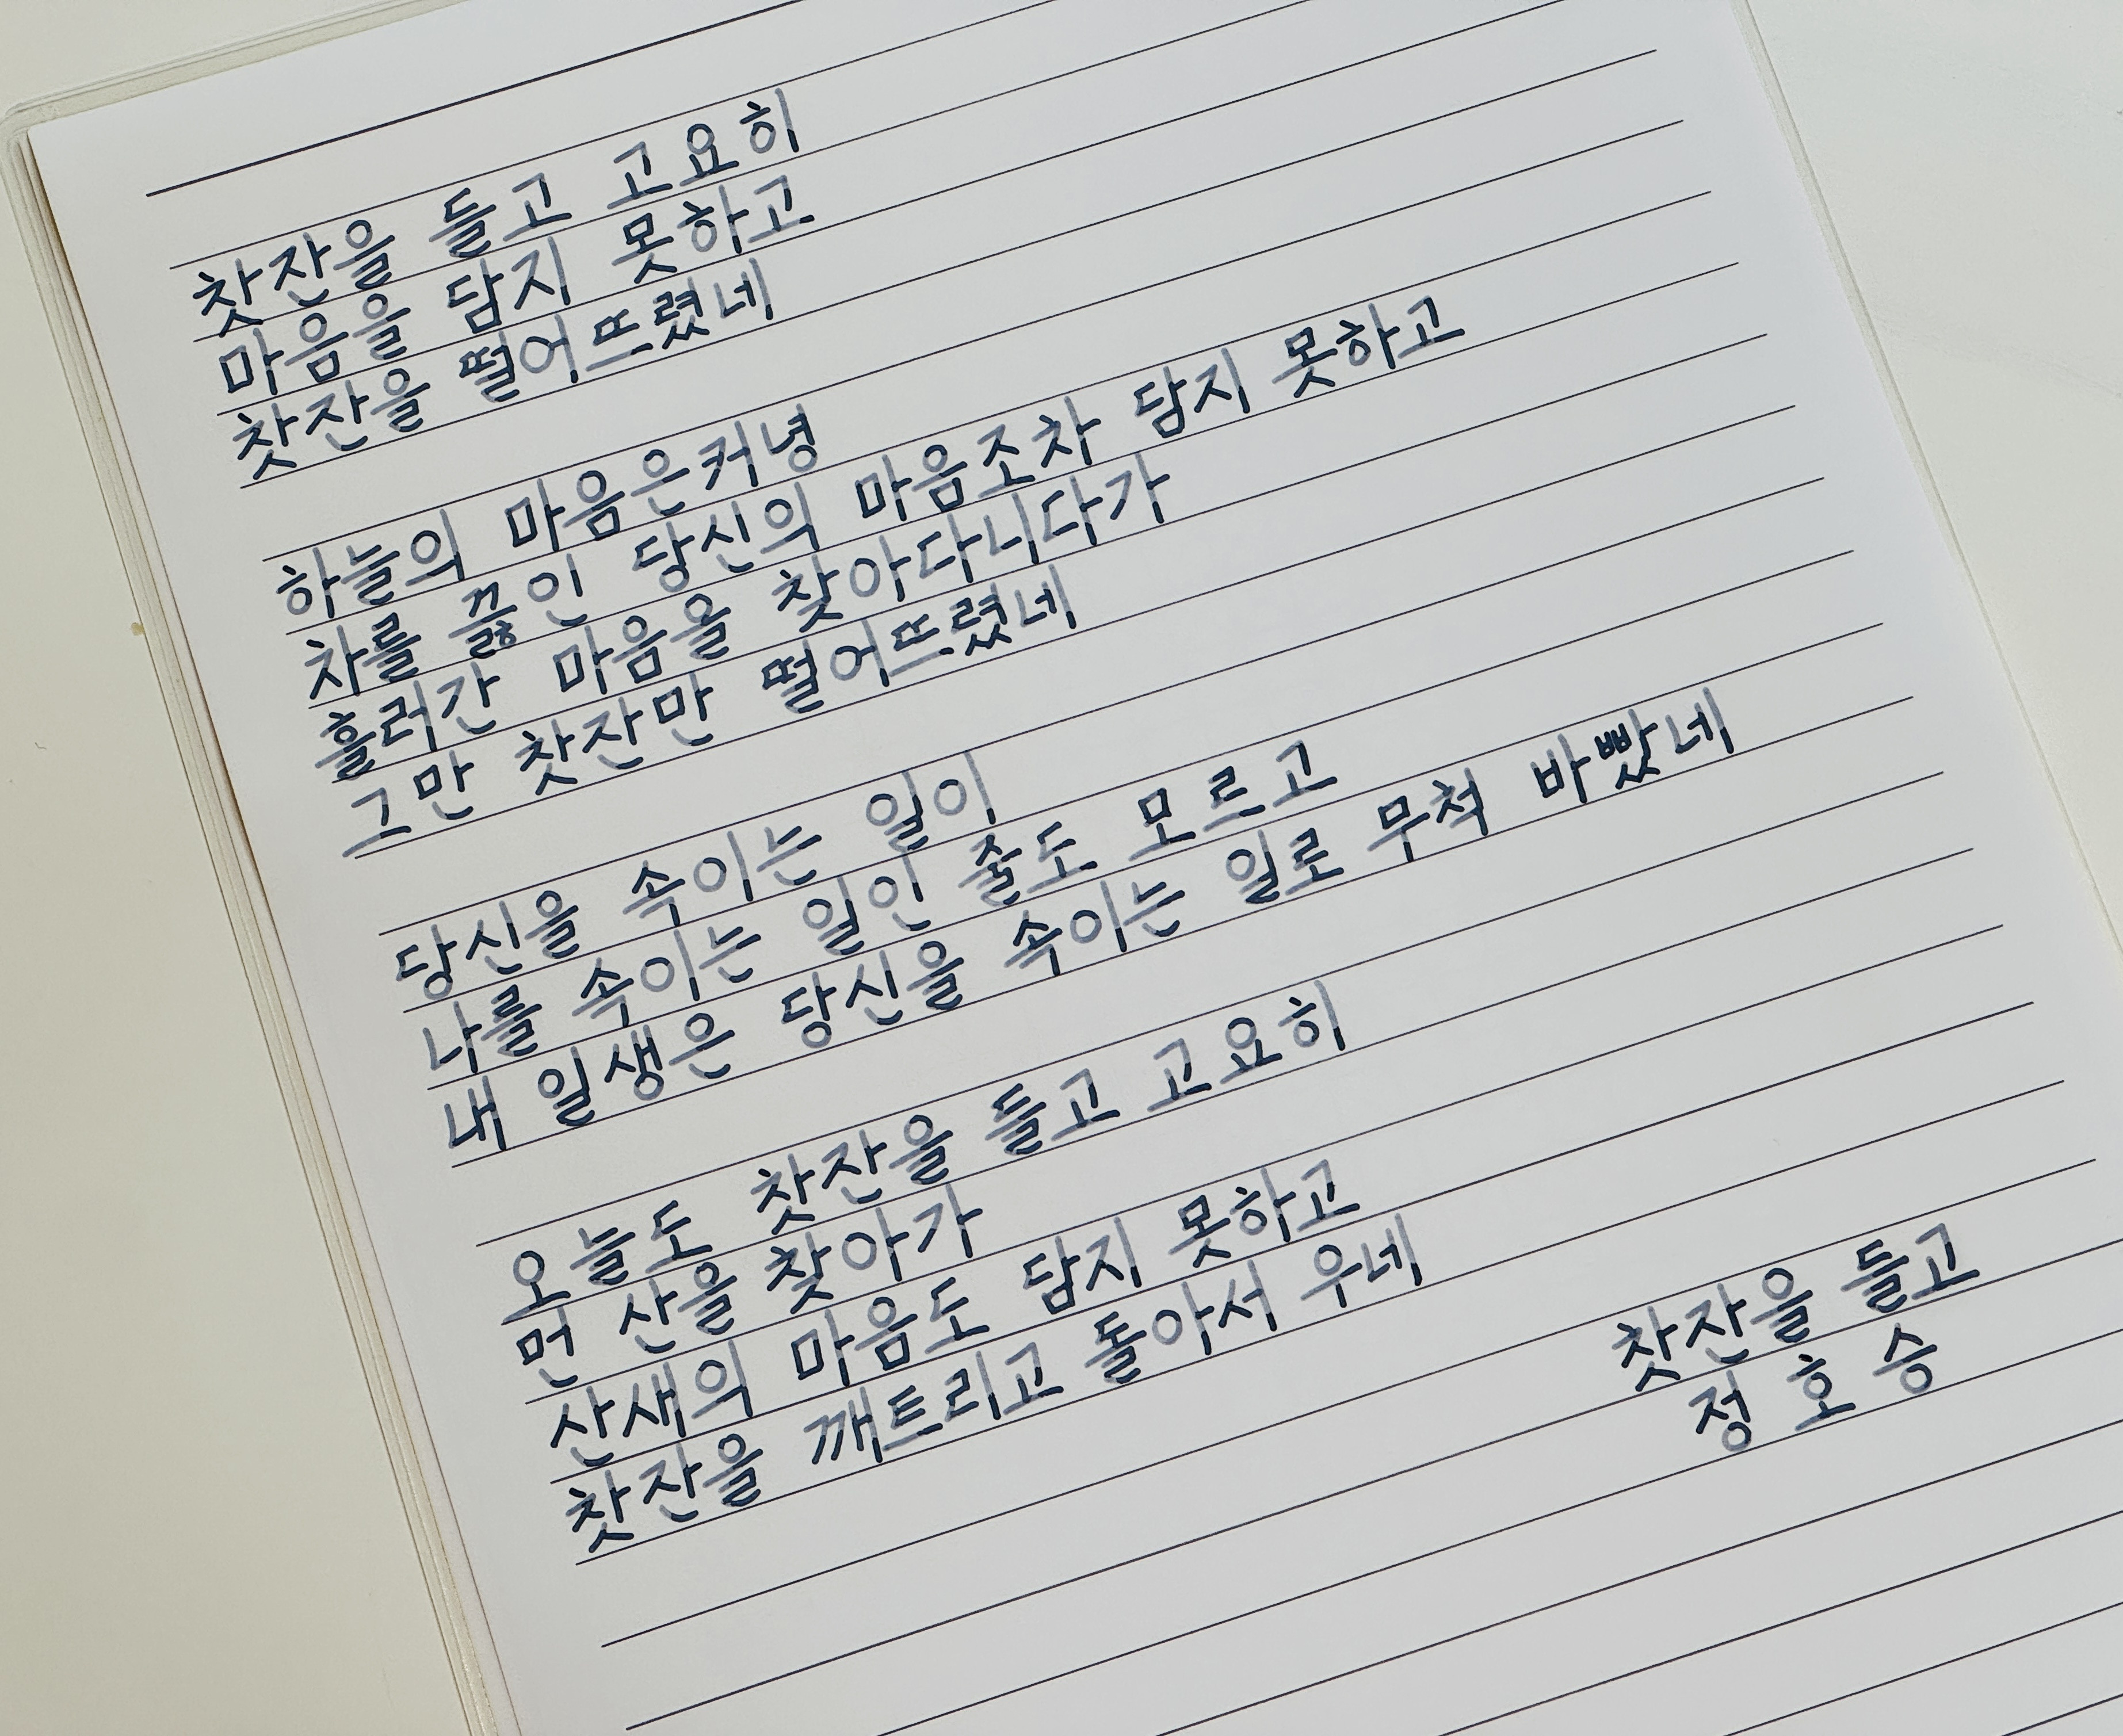 찻잔을 들고 고요히
마음을 담지 못하고
찻잔을 떨어뜨렸네
하늘의 마음은커녕
차를 끓인 당신의 마음조차 담지 못하고
흘러간 마음을 찾아다니다가
그만 찻잔만 떨어뜨렸네
당신을 속이는 일이
나를 속이는 일인 줄도 모르고
내 일생은 당신을 속이는 일로 무척 바빴네
오늘도 찻잔을 들고 고요히
먼 산을 찾아가
산새의 마음도 담지 못하고
찻잔을 깨트리고 돌아서 우네
찻잔을 들고
정호승